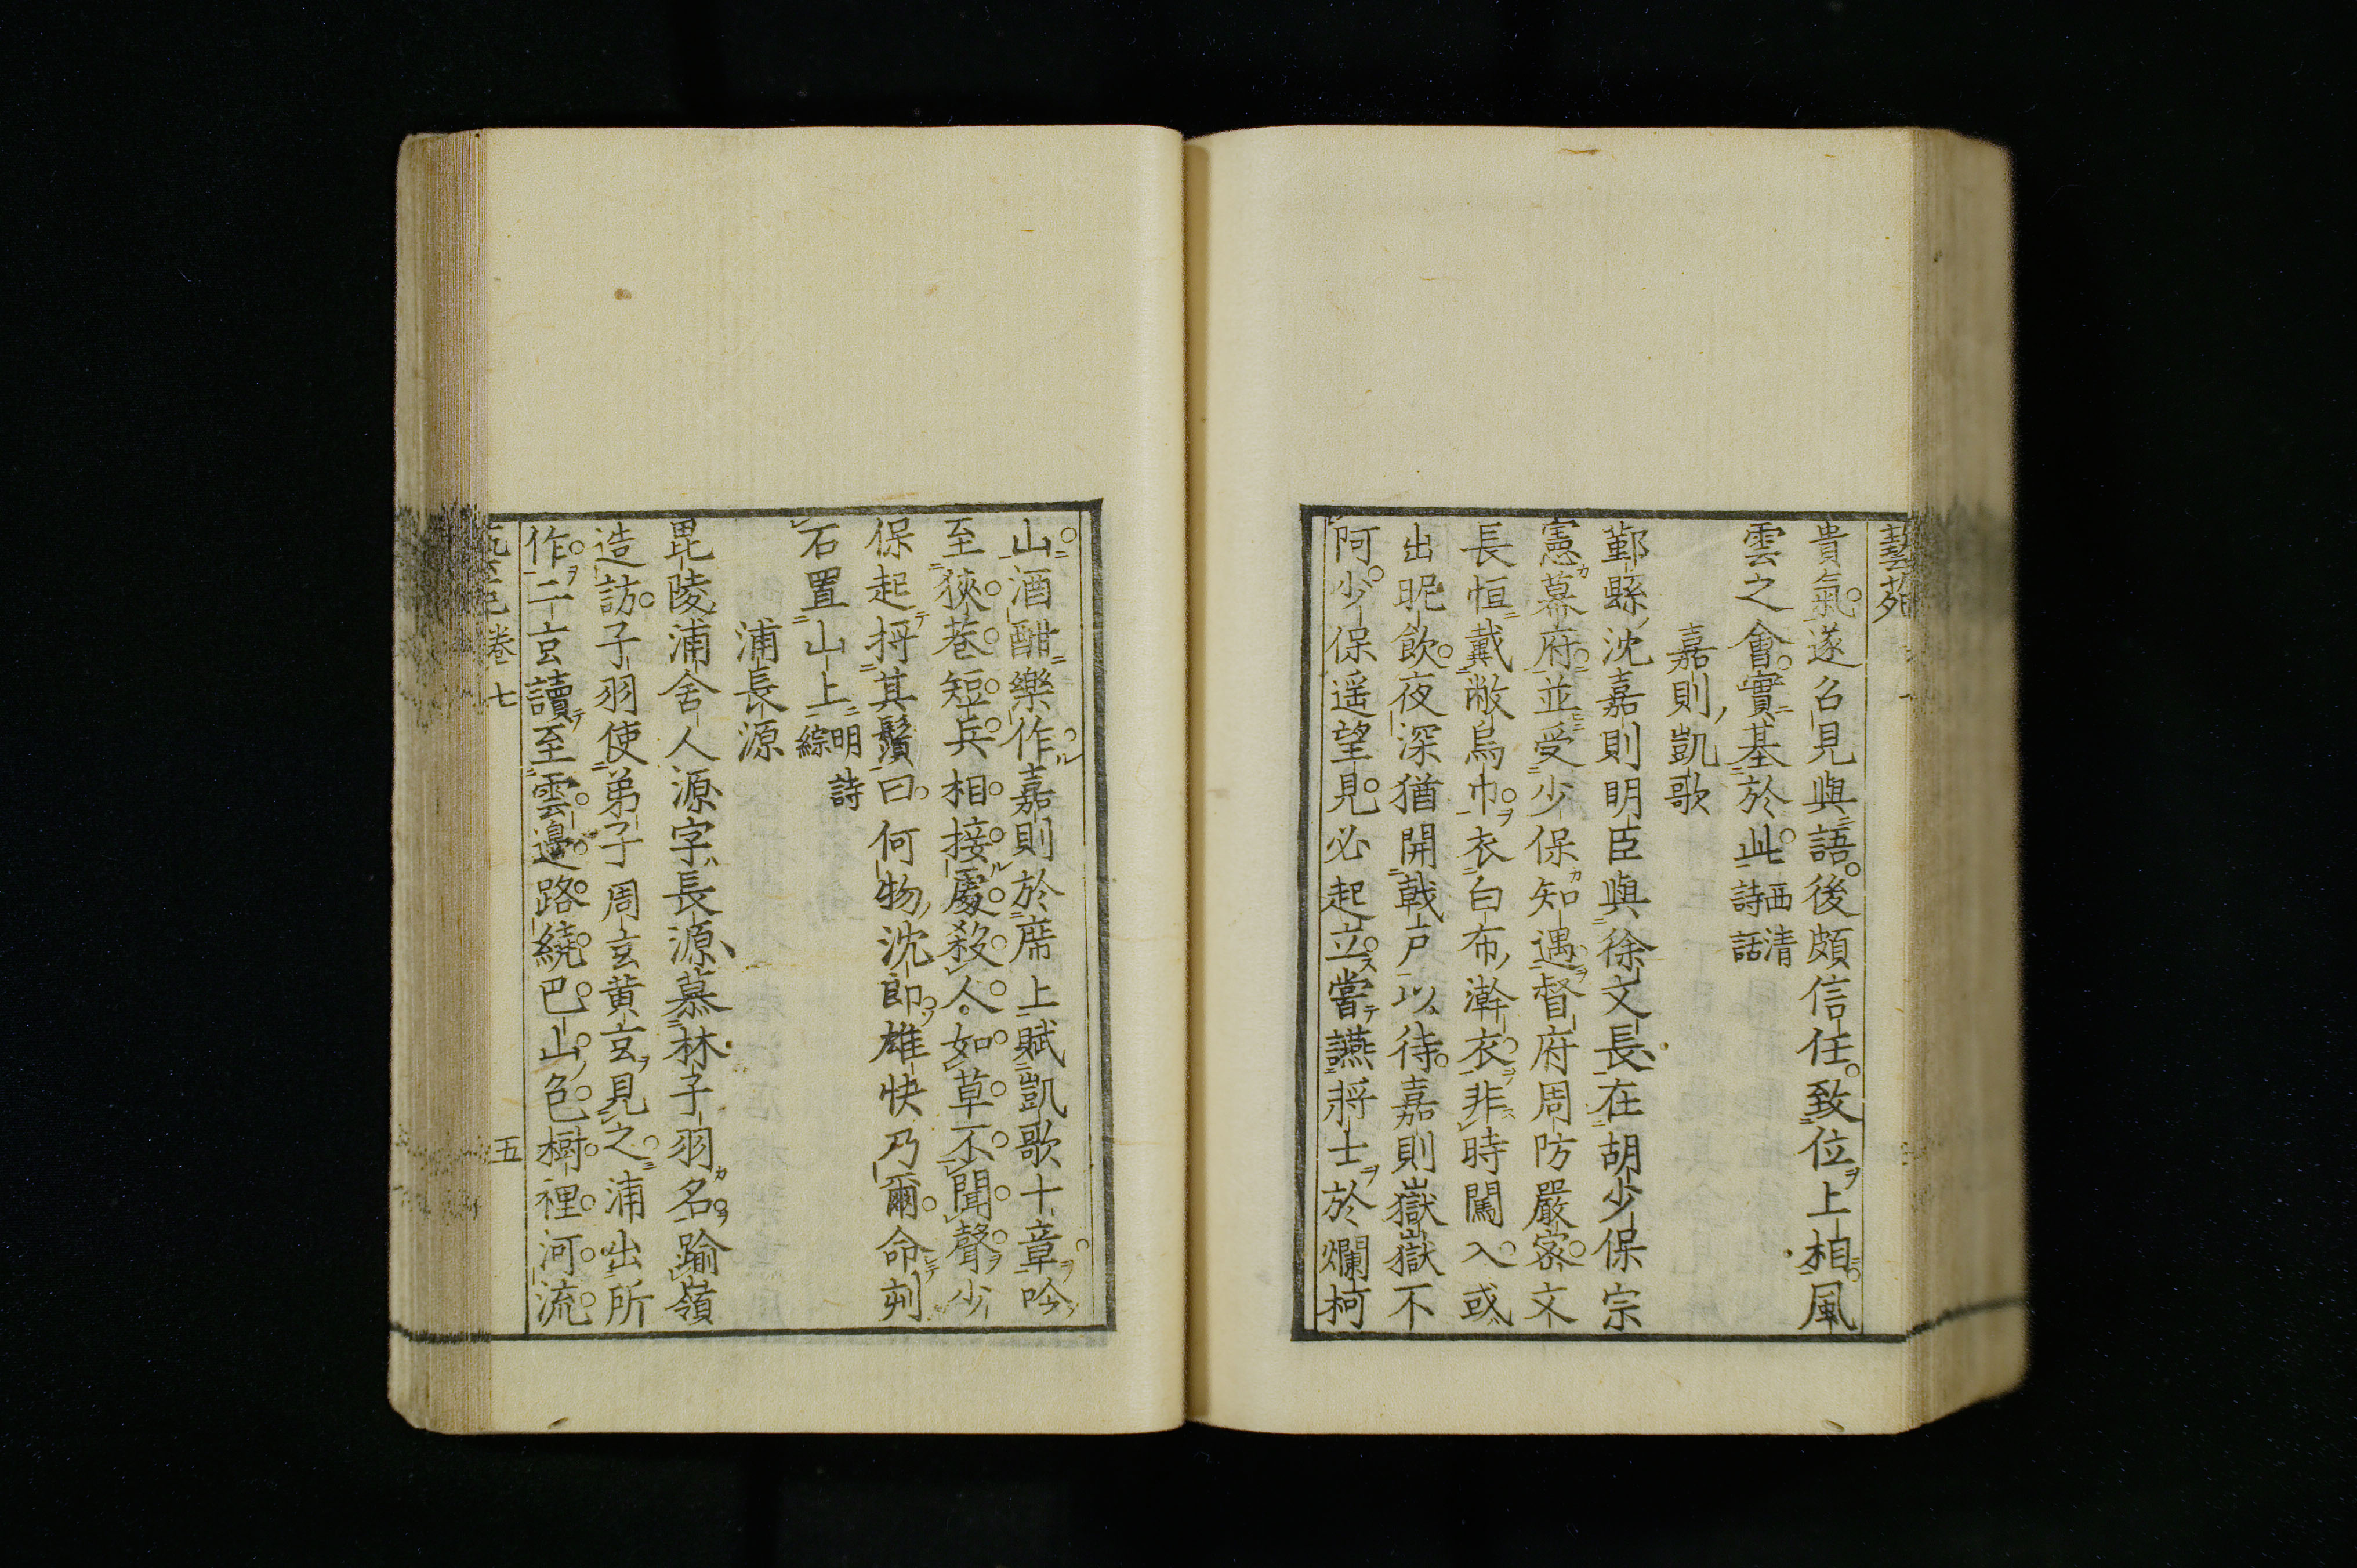 藝苑
貴氣遂召見與語後頗信任致位上相風
雲之會實基於此西清詩話
嘉則凱歌
鄞縣沈嘉則明臣與徐文長在胡少保宗
憲幕府並受少保知遇督府周防嚴密文
長恒戴敝烏巾衣白布澣衣非時闖入或
出昵飲夜深猶開戟戶以待嘉則嶽嶽不
阿少保遥望見必起立嘗讌將士於爛柯
山酒酣樂作嘉則於席上賦凱歌十章吟
至狹巷短兵相接處殺人如草不聞聲少
保起捋其鬚曰何物沈郎雄快乃爾命刻
石置山上明詩綜
浦長源
毘陵浦舍人源字長源慕林子羽名踰嶺
造訪子羽使弟子周玄黄玄見之浦出所
作二玄讀至雲邊路繞巴山色樹裡河流
卷七
五